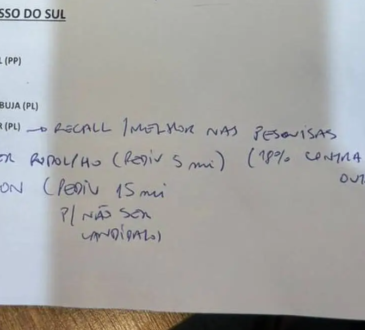 SSO DO SUL
(PP)
BUJA (PL)
(PL) → RECALL / MELHOR NAS PESQUISAS
ER RODOLPHO (PEDIU 5 mi) (18% CONTRA
OUT
ON (PEDIU 15 mi
P/ NÃO SER
CANDIDATO)